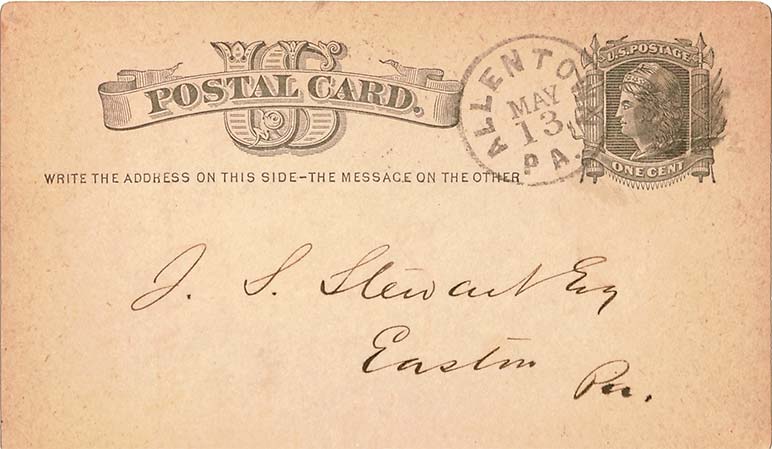 US
POSTAL CARD.
ALLENTO
MAY
13
PA.
U.S. POSTAGE
ONE CENT
WRITE THE ADDRESS ON THIS SIDE—THE MESSAGE ON THE OTHER
J. S. Stewart Esq
Easton
Pa.